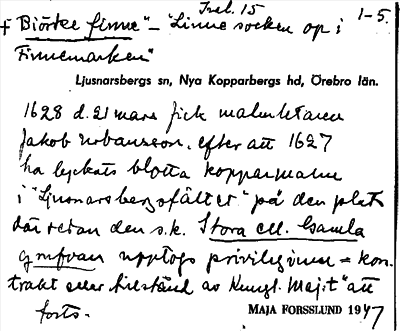 Inl. 15
1-5.
+ Biörke finne" - "Linne socken op i
Finnemarken"
Ljusnarsbergs sn, Nya Kopparbergs hd, Örebro län.
1628 d. 21 mars fick malmletaren
Jakob Urbansson, efter att 1627
ha lyckats blotta kopparmalm
i "Ljusnarsbergsfältet" på den plats
där sedan den s.k. Stora ell. Gamla
gruvan upptogs privilegium = kon-
trakt eller tillstånd av Kungl. Maj:t "att
forts.
MAJA FORSSLUND 1947